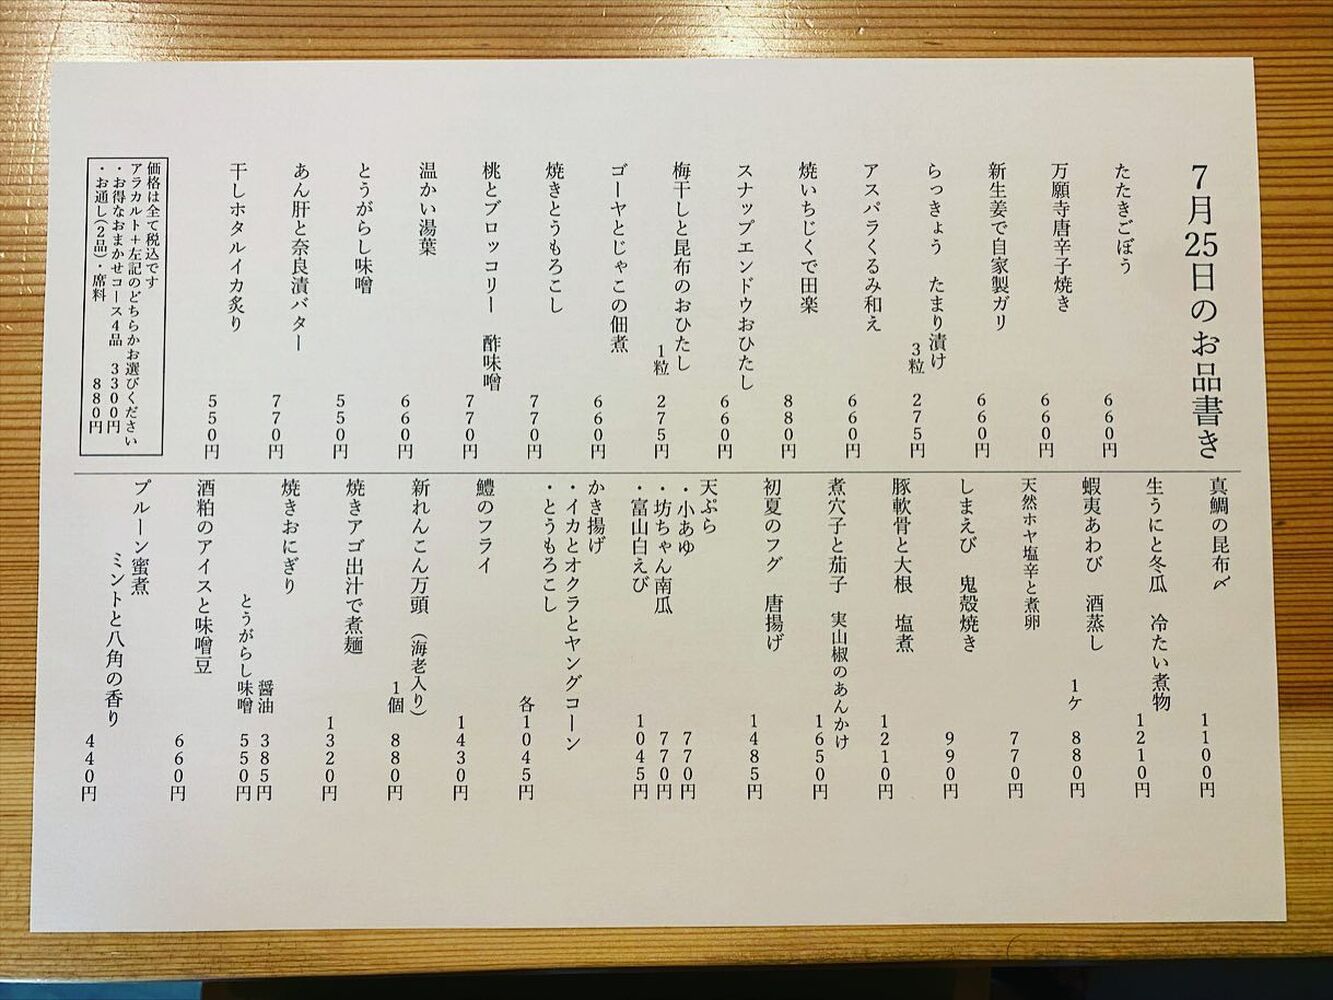 7月25日のお品書き
たたきごぼう
660円
万願寺唐辛子焼き
660円
新生姜で自家製ガリ
660円
らっきょう　たまり漬け
3粒　275円
アスパラくるみ和え
660円
焼いちじくで田楽
880円
スナップエンドウおひたし
660円
梅干しと昆布のおひたし
1粒　275円
ゴーヤとじゃこの佃煮
660円
焼きとうもろこし
770円
桃とブロッコリー　酢味噌
770円
温かい湯葉
660円
とうがらし味噌
550円
あん肝と奈良漬バター
770円
干しホタルイカ炙り
550円
価格は全て税込です
アラカルト＋左記のどちらかお選びください
・お得なおまかせコース4品　3300円
・お通し(2品)・席料　880円
真鯛の昆布〆
1100円
生うにと冬瓜　冷たい煮物
1210円
蝦夷あわび　酒蒸し
1ケ　880円
天然ホヤ塩辛と煮卵
770円
しまえび　鬼殻焼き
990円
豚軟骨と大根　塩煮
1210円
煮穴子と茄子　実山椒のあんかけ
1650円
初夏のフグ　唐揚げ
1485円
天ぷら
・小あゆ　770円
・坊ちゃん南瓜　770円
・富山白えび　1045円
かき揚げ
・イカとオクラとヤングコーン
・とうもろこし
各1045円
鱧のフライ
1430円
新れんこん万頭　(海老入り)
1個　880円
焼きアゴ出汁で煮麺
1320円
焼きおにぎり
醤油　385円
とうがらし味噌　550円
酒粕のアイスと味噌豆
660円
プルーン蜜煮
ミントと八角の香り
440円